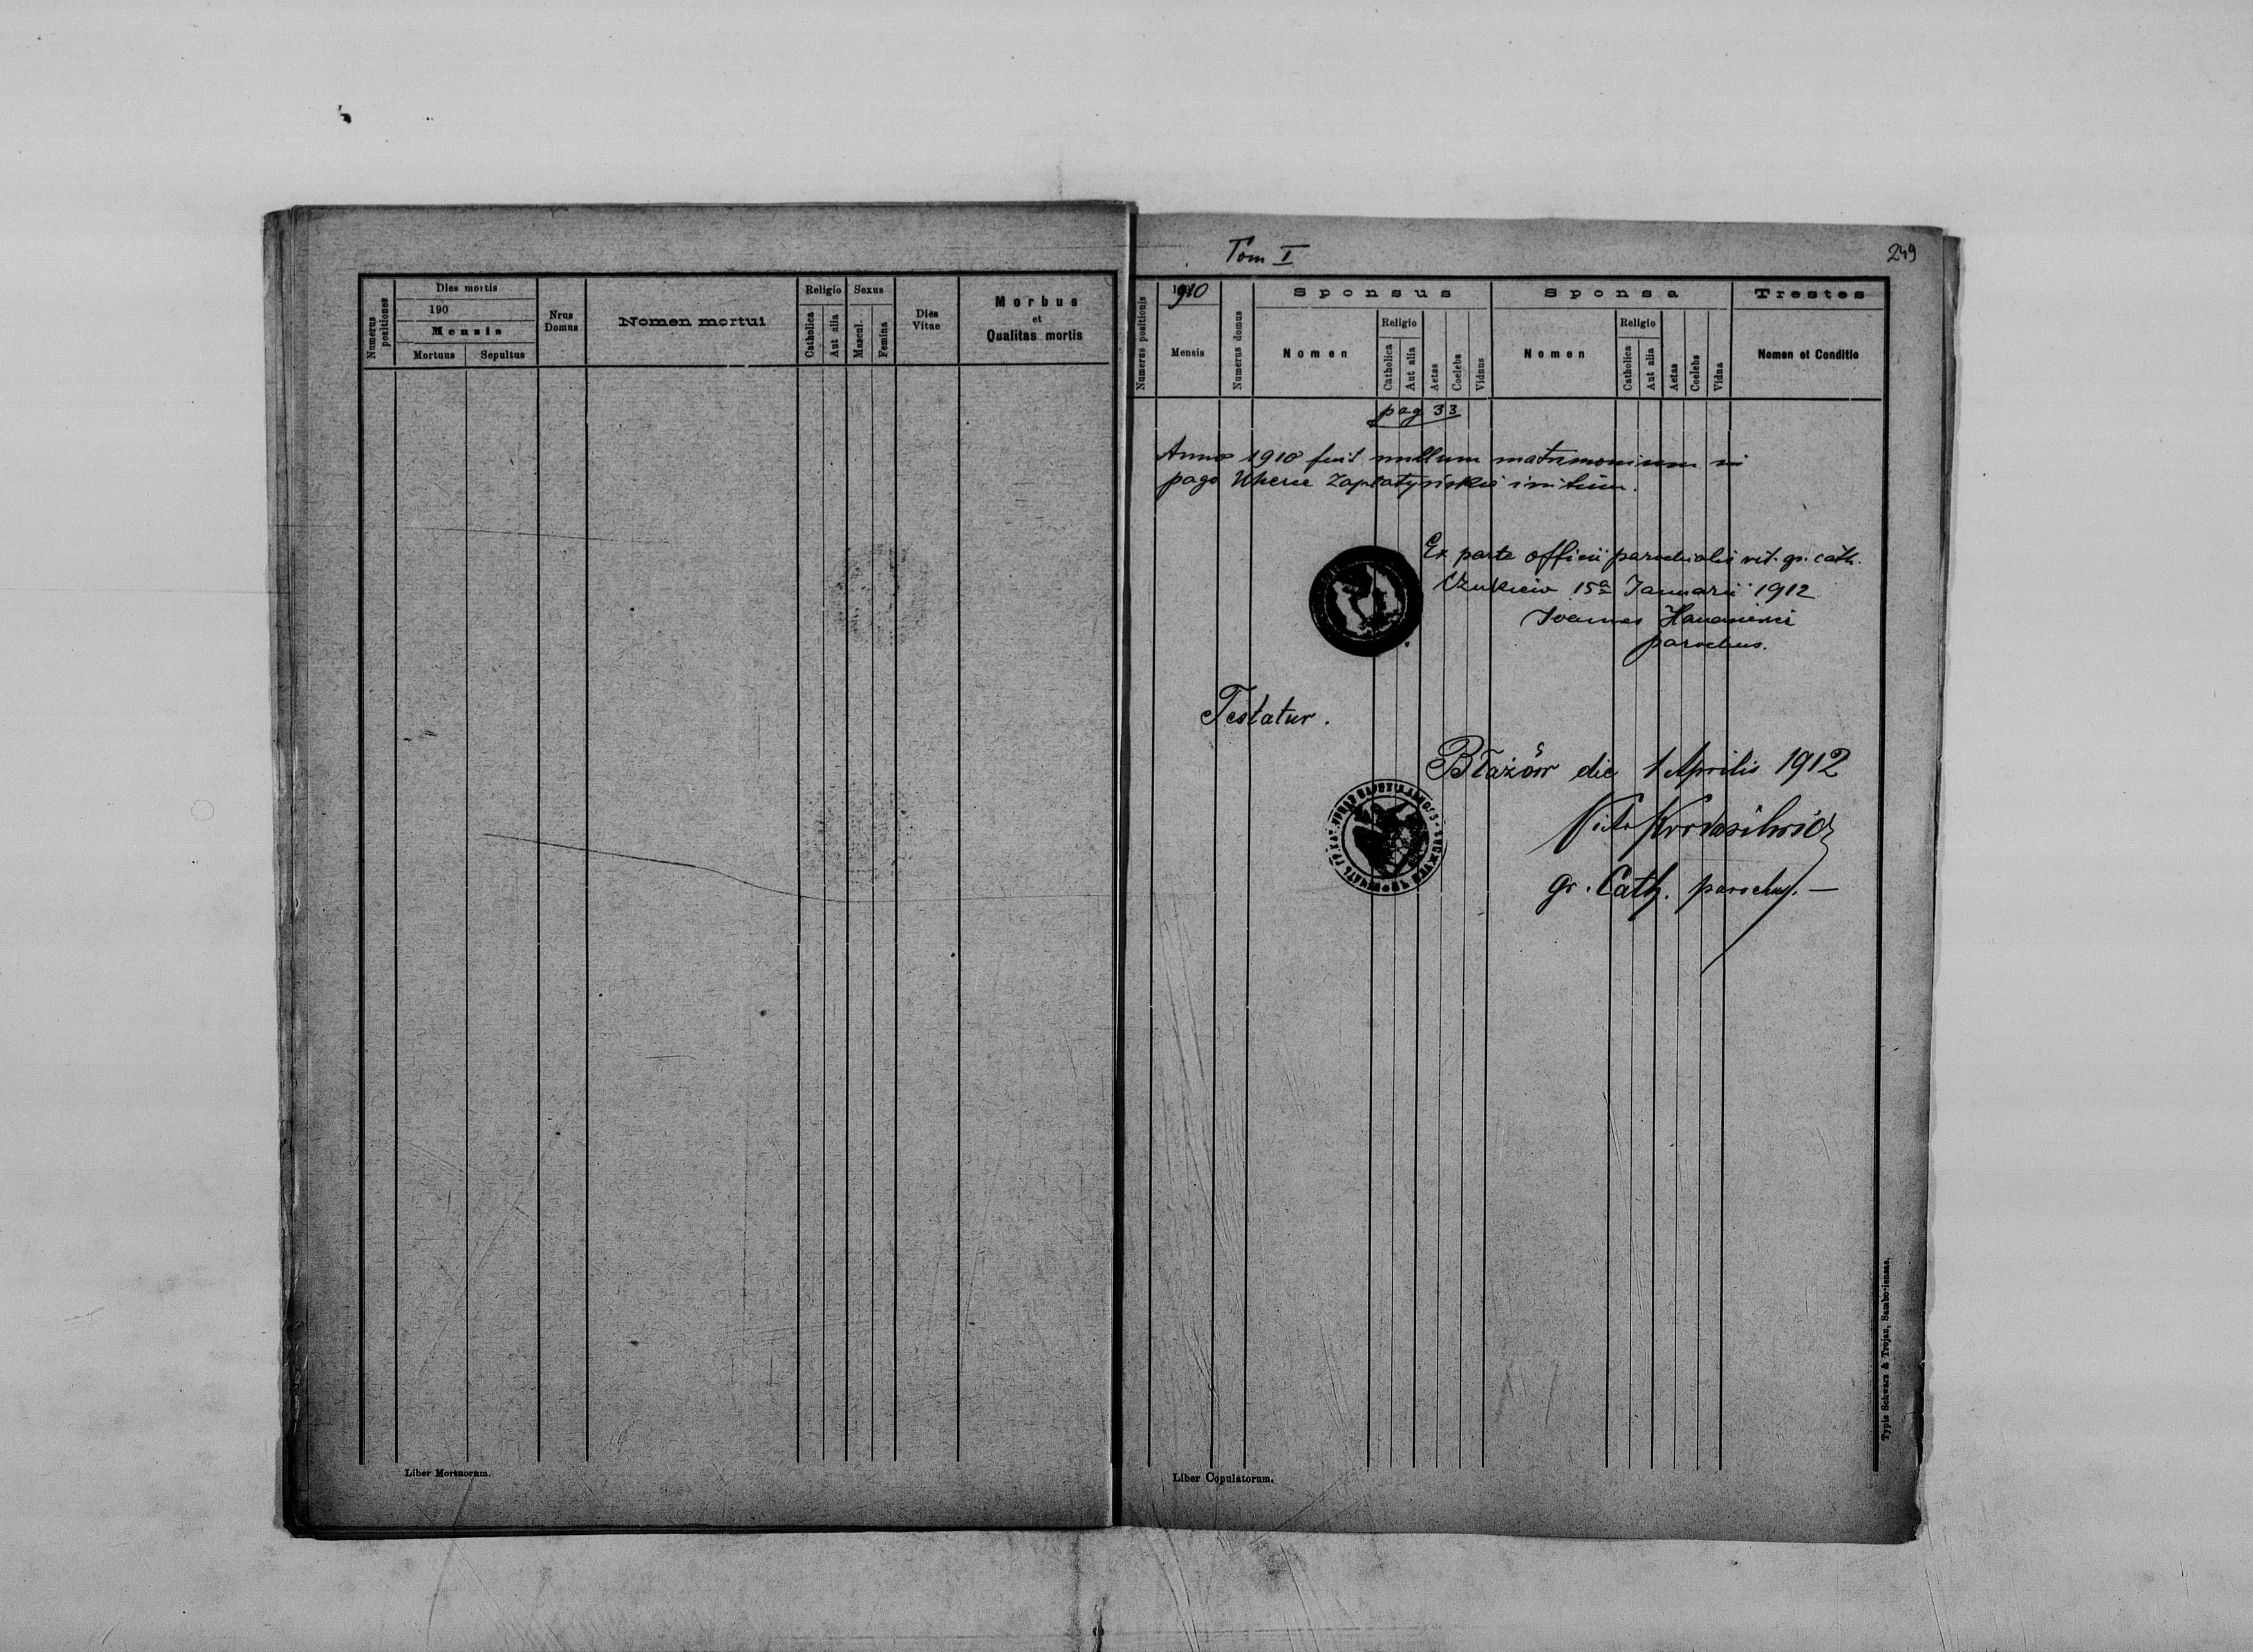 Dies mortis
190
Mensis
Mortuus Sepultus
Numerus positiones
Nrus Domus
Nomen mortui
Religio
Catholica
Aut alia
Sexus
Mascul.
Femina
Dies Vitae
Morbus
et
Qualitas mortis
Liber Mortuorum.
Tom I
249
Numerus positionis
1910
Mensis
Numerus domus
Sponsus
Nomen
Religio
Catholica
Aut alia
Aetas
Coelebs
Viduus
Sponsa
Nomen
Religio
Catholica
Aut alia
Aetas
Coelebs
Vidua
Trestes
Nomen et Conditio
pag 33
Anno 1910 fuit nullum matrimonium in
pago Uherce Zapłatyńskie initum.
Ex parte officii parochialis rit. gr. cath.
Czukiew 15a Januarii 1912
Joannes
parochus.
Testatur.
Błażów die 1 Aprilis 1912
gr. Cath. parochus.
Liber Copulatorum.
Typis Schwarz & Trojan, Samboriensae.